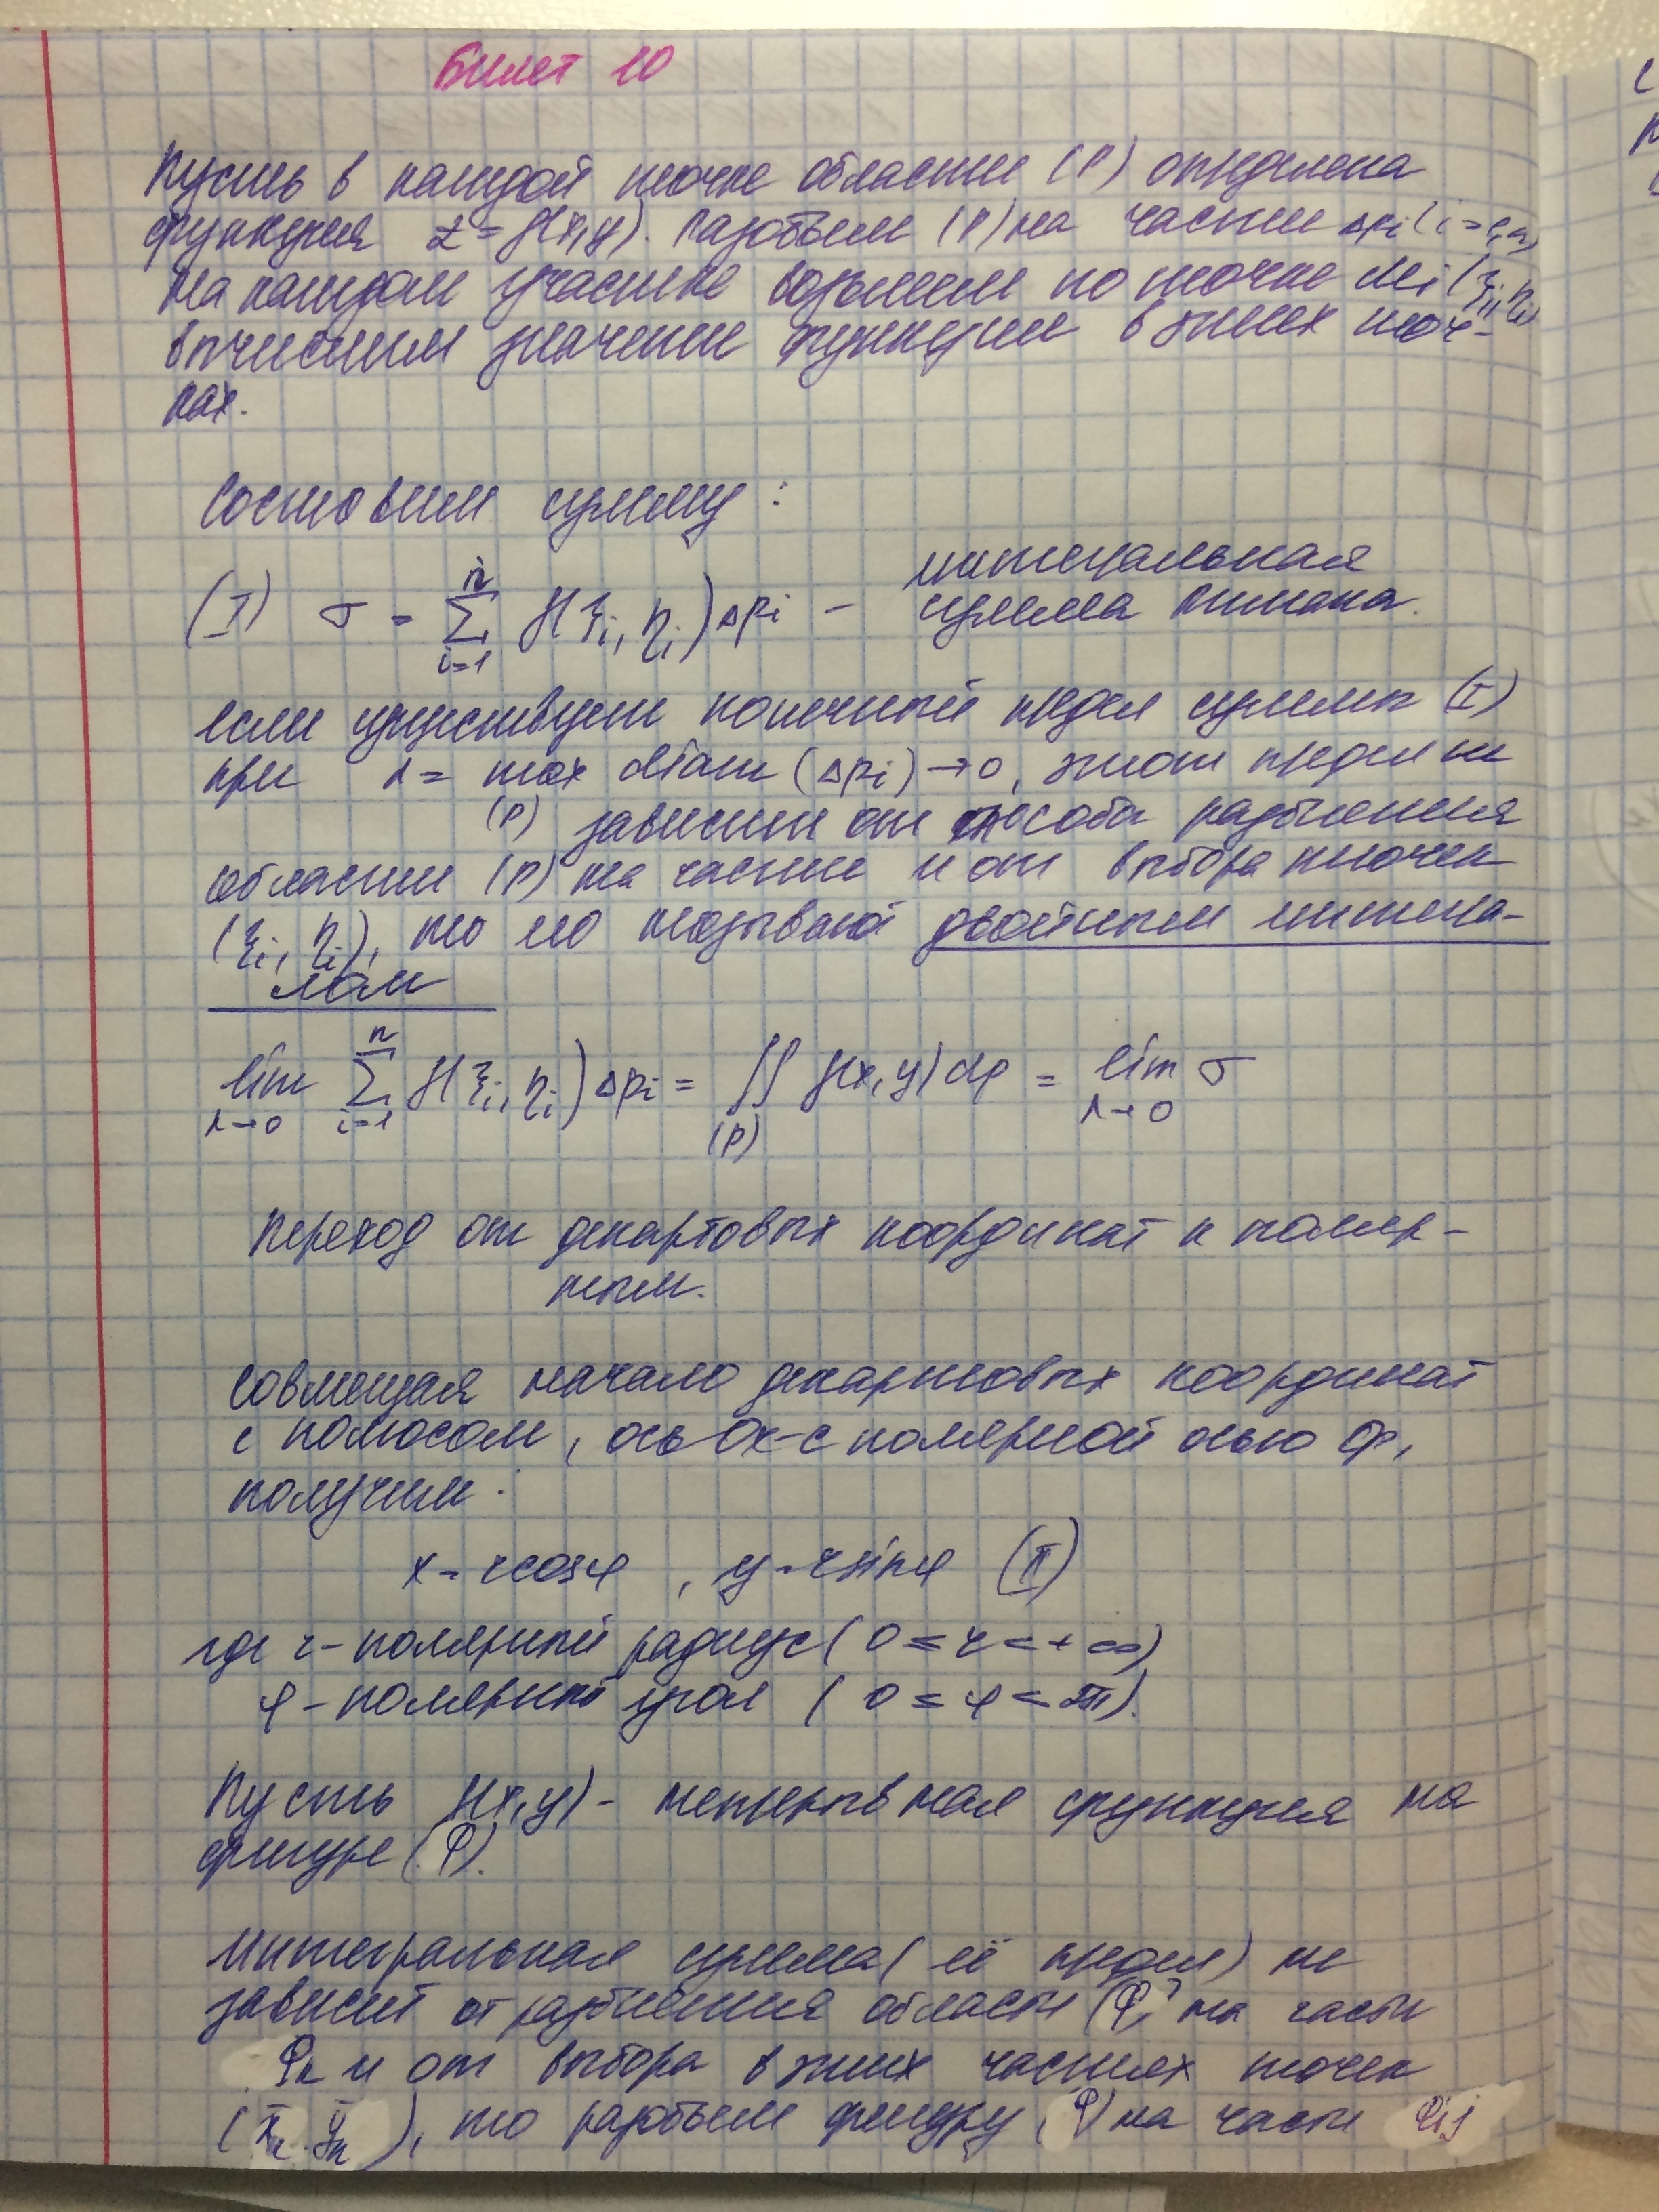 Билет 10
Пусть в каждой точке области (P) определена
функция z = f(x,y). Разобьем (P) на части Δpi (i=1,n)
На каждом участке возьмем по точке Mi(ξi, ηi)
вычислим значение функции в этих точ-
ках.
Составим сумму:
(I) σ = Σ f(ξi, ηi)Δpi – интегральная
n
i=1
сумма Римана.
Если существует конечный предел суммы (I)
при λ = max diam (Δpi) → 0, этот предел не
(P) зависит от способа разбиения
области (P) на части и от выбора точек
(ξi, ηi), то его называют двойным интегра-
лом
lim Σ f(ξi, ηi)Δpi = ∬ f(x,y)dp = lim σ
n
λ→0 i=1 (P) λ→0
Переход от декартовых координат к поляр-
ным.
Совмещая начало декартовых координат
с полюсом, ось Ox – с полярной осью Op,
получим:
x = rcosφ, y = rsinφ (II)
где r – полярный радиус (0 ≤ r < +∞)
φ – полярный угол (0 ≤ φ < 2π).
Пусть f(x,y) – непрерывная функция на
фигуре (Φ).
Интегральная сумма (её предел) не
зависит от разбиения области (Φ) на части
Φk и от выбора в этих частях точек
(x̄k, ȳk), то разобьем фигуру (Φ) на части Φij